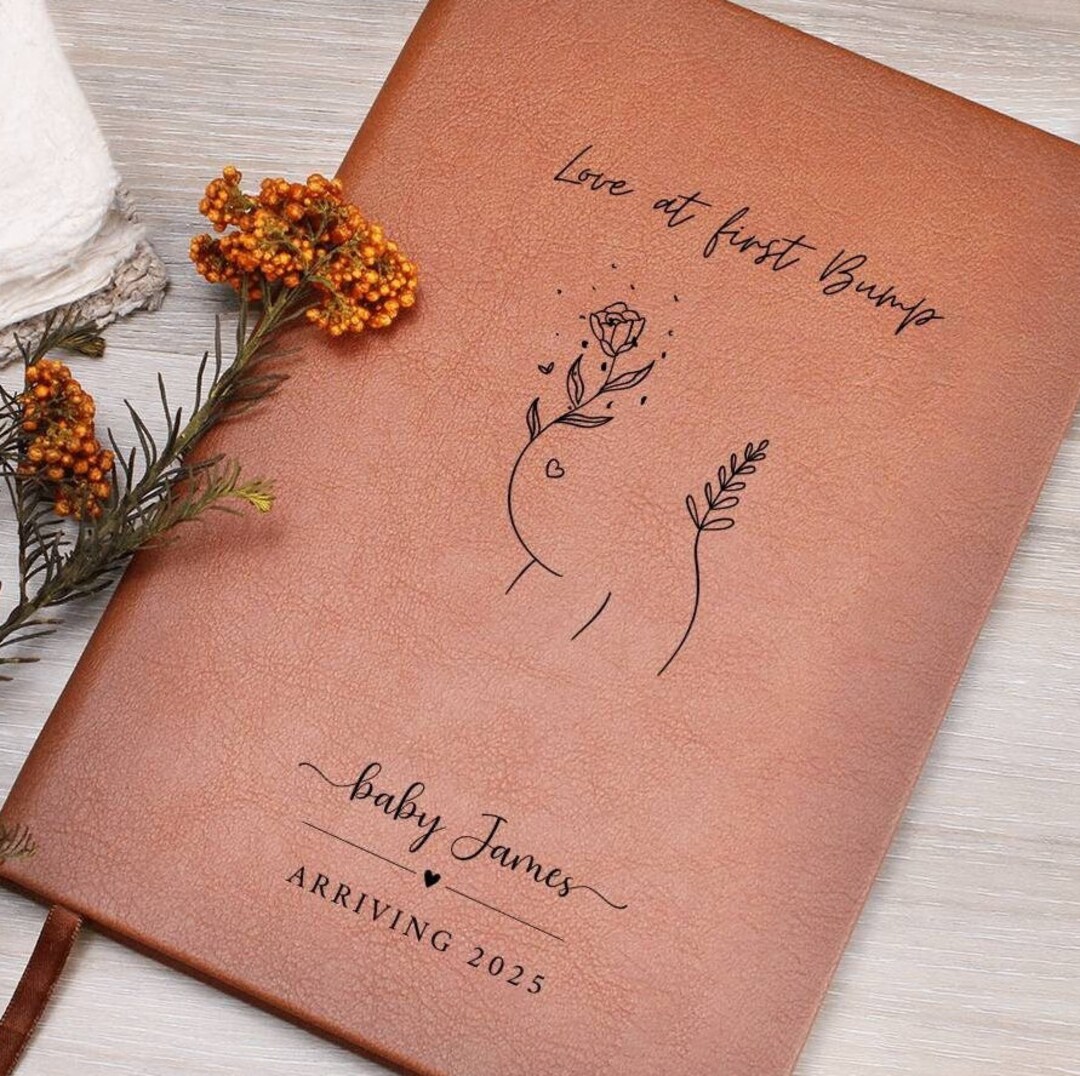 Love at first Bump
baby James
ARRIVING 2025